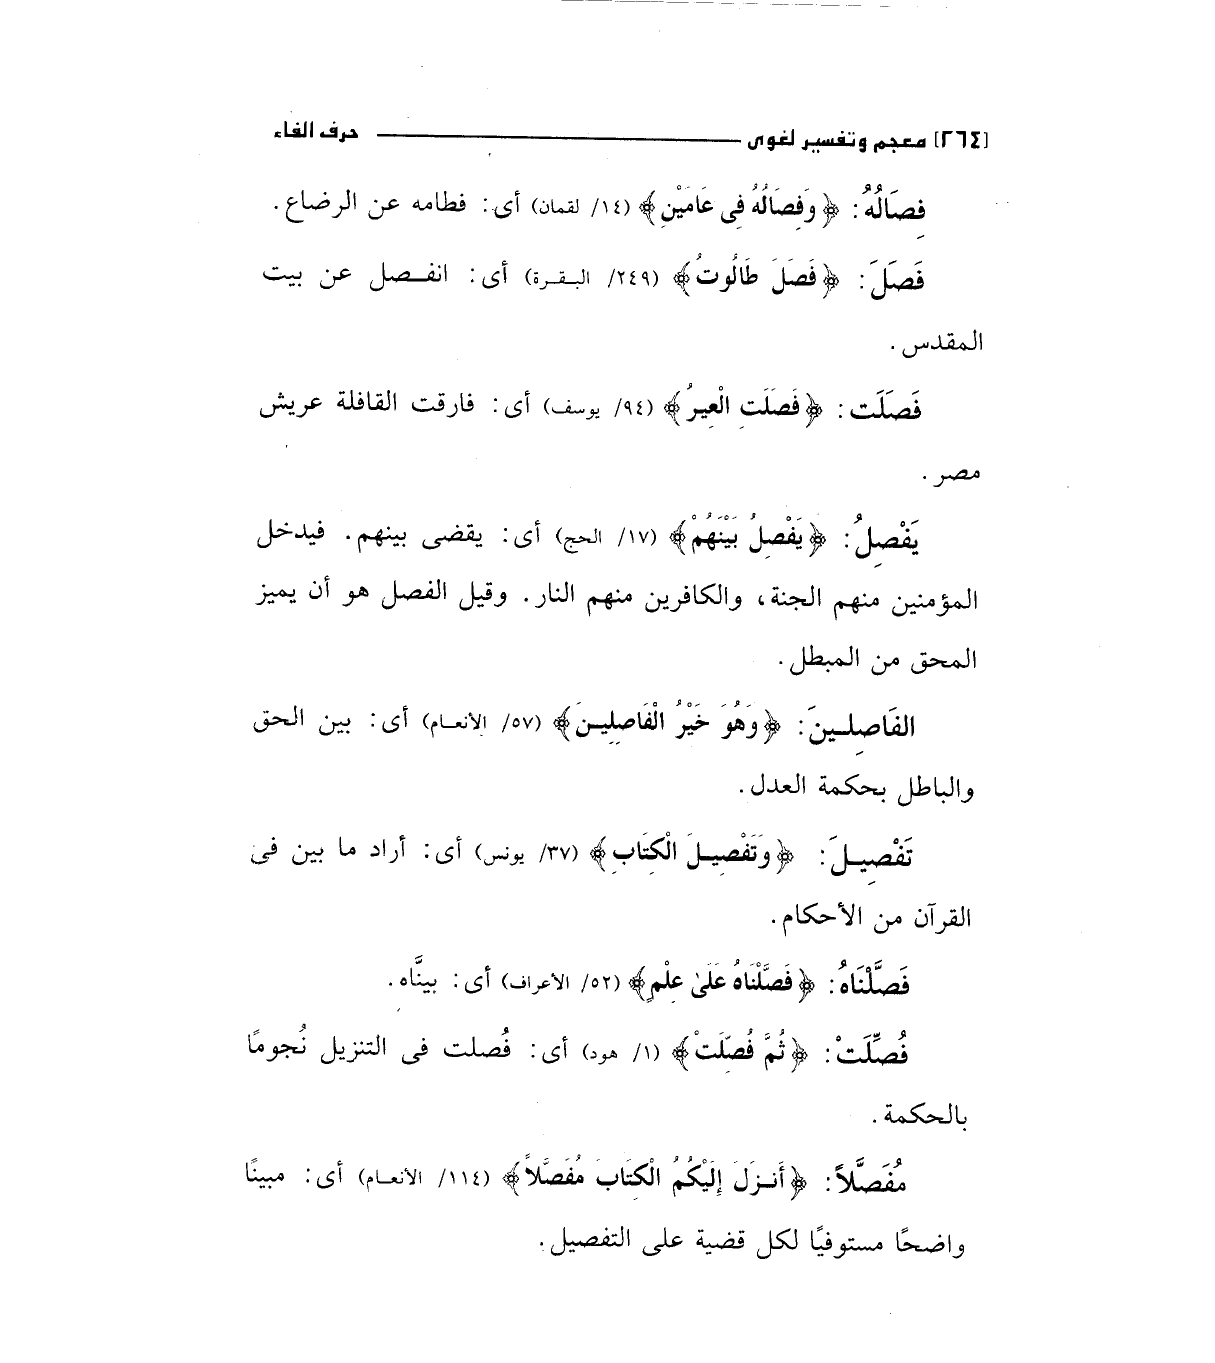 [٢٦٤] معجم وتفسير لغوى حرف الفاء
فِصَالُهُ: ﴿وَفِصَالُهُ فِى عَامَيْنِ﴾ (١٤/ لقمان) أى: فطامه عن الرضاع.
فَصَلَ: ﴿فَصَلَ طَالُوتُ﴾ (٢٤٩/ البقرة) أى: انفصل عن بيت
المقدس.
فَصَلَت: ﴿فَصَلَتِ الْعِيرُ﴾ (٩٤/ يوسف) أى: فارقت القافلة عريش
مصر.
يَفْصِلُ: ﴿يَفْصِلُ بَيْنَهُمْ﴾ (١٧/ الحج) أى: يقضى بينهم. فيدخل
المؤمنين منهم الجنة، والكافرين منهم النار. وقيل الفصل هو أن يميز
المحق من المبطل.
الفَاصِلِينَ: ﴿وَهُوَ خَيْرُ الْفَاصِلِينَ﴾ (٥٧/ الأنعام) أى: بين الحق
والباطل بحكمة العدل.
تَفْصِيلَ: ﴿وَتَفْصِيلَ الْكِتَابِ﴾ (٣٧/ يونس) أى: أراد ما بين فى
القرآن من الأحكام.
فَصَّلْنَاهُ: ﴿فَصَّلْنَاهُ عَلَىٰ عِلْمٍ﴾ (٥٢/ الأعراف) أى: بينَّاه.
فُصِّلَتْ: ﴿ثُمَّ فُصِّلَتْ﴾ (١/ هود) أى: فُصلت فى التنزيل نُجومًا
بالحكمة.
مُفَصَّلاً: ﴿أَنزَلَ إِلَيْكُمُ الْكِتَابَ مُفَصَّلاً﴾ (١١٤/ الأنعام) أى: مبينًا
واضحًا مستوفيًا لكل قضية على التفصيل.